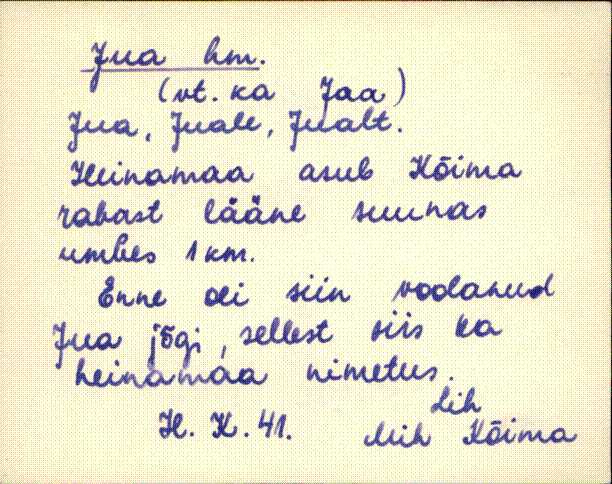 Jua hm.
(vt. ka Jaa)
Jua, Juale, Jualt.
Heinamaa asub Kõima
rabast lääne suunas
umbes 1 km.
Enne oli siin voolanud
Jua jõgi, sellest siis ka
heinamaa nimetus.
Lih
H. K. 41. Mih Kõima